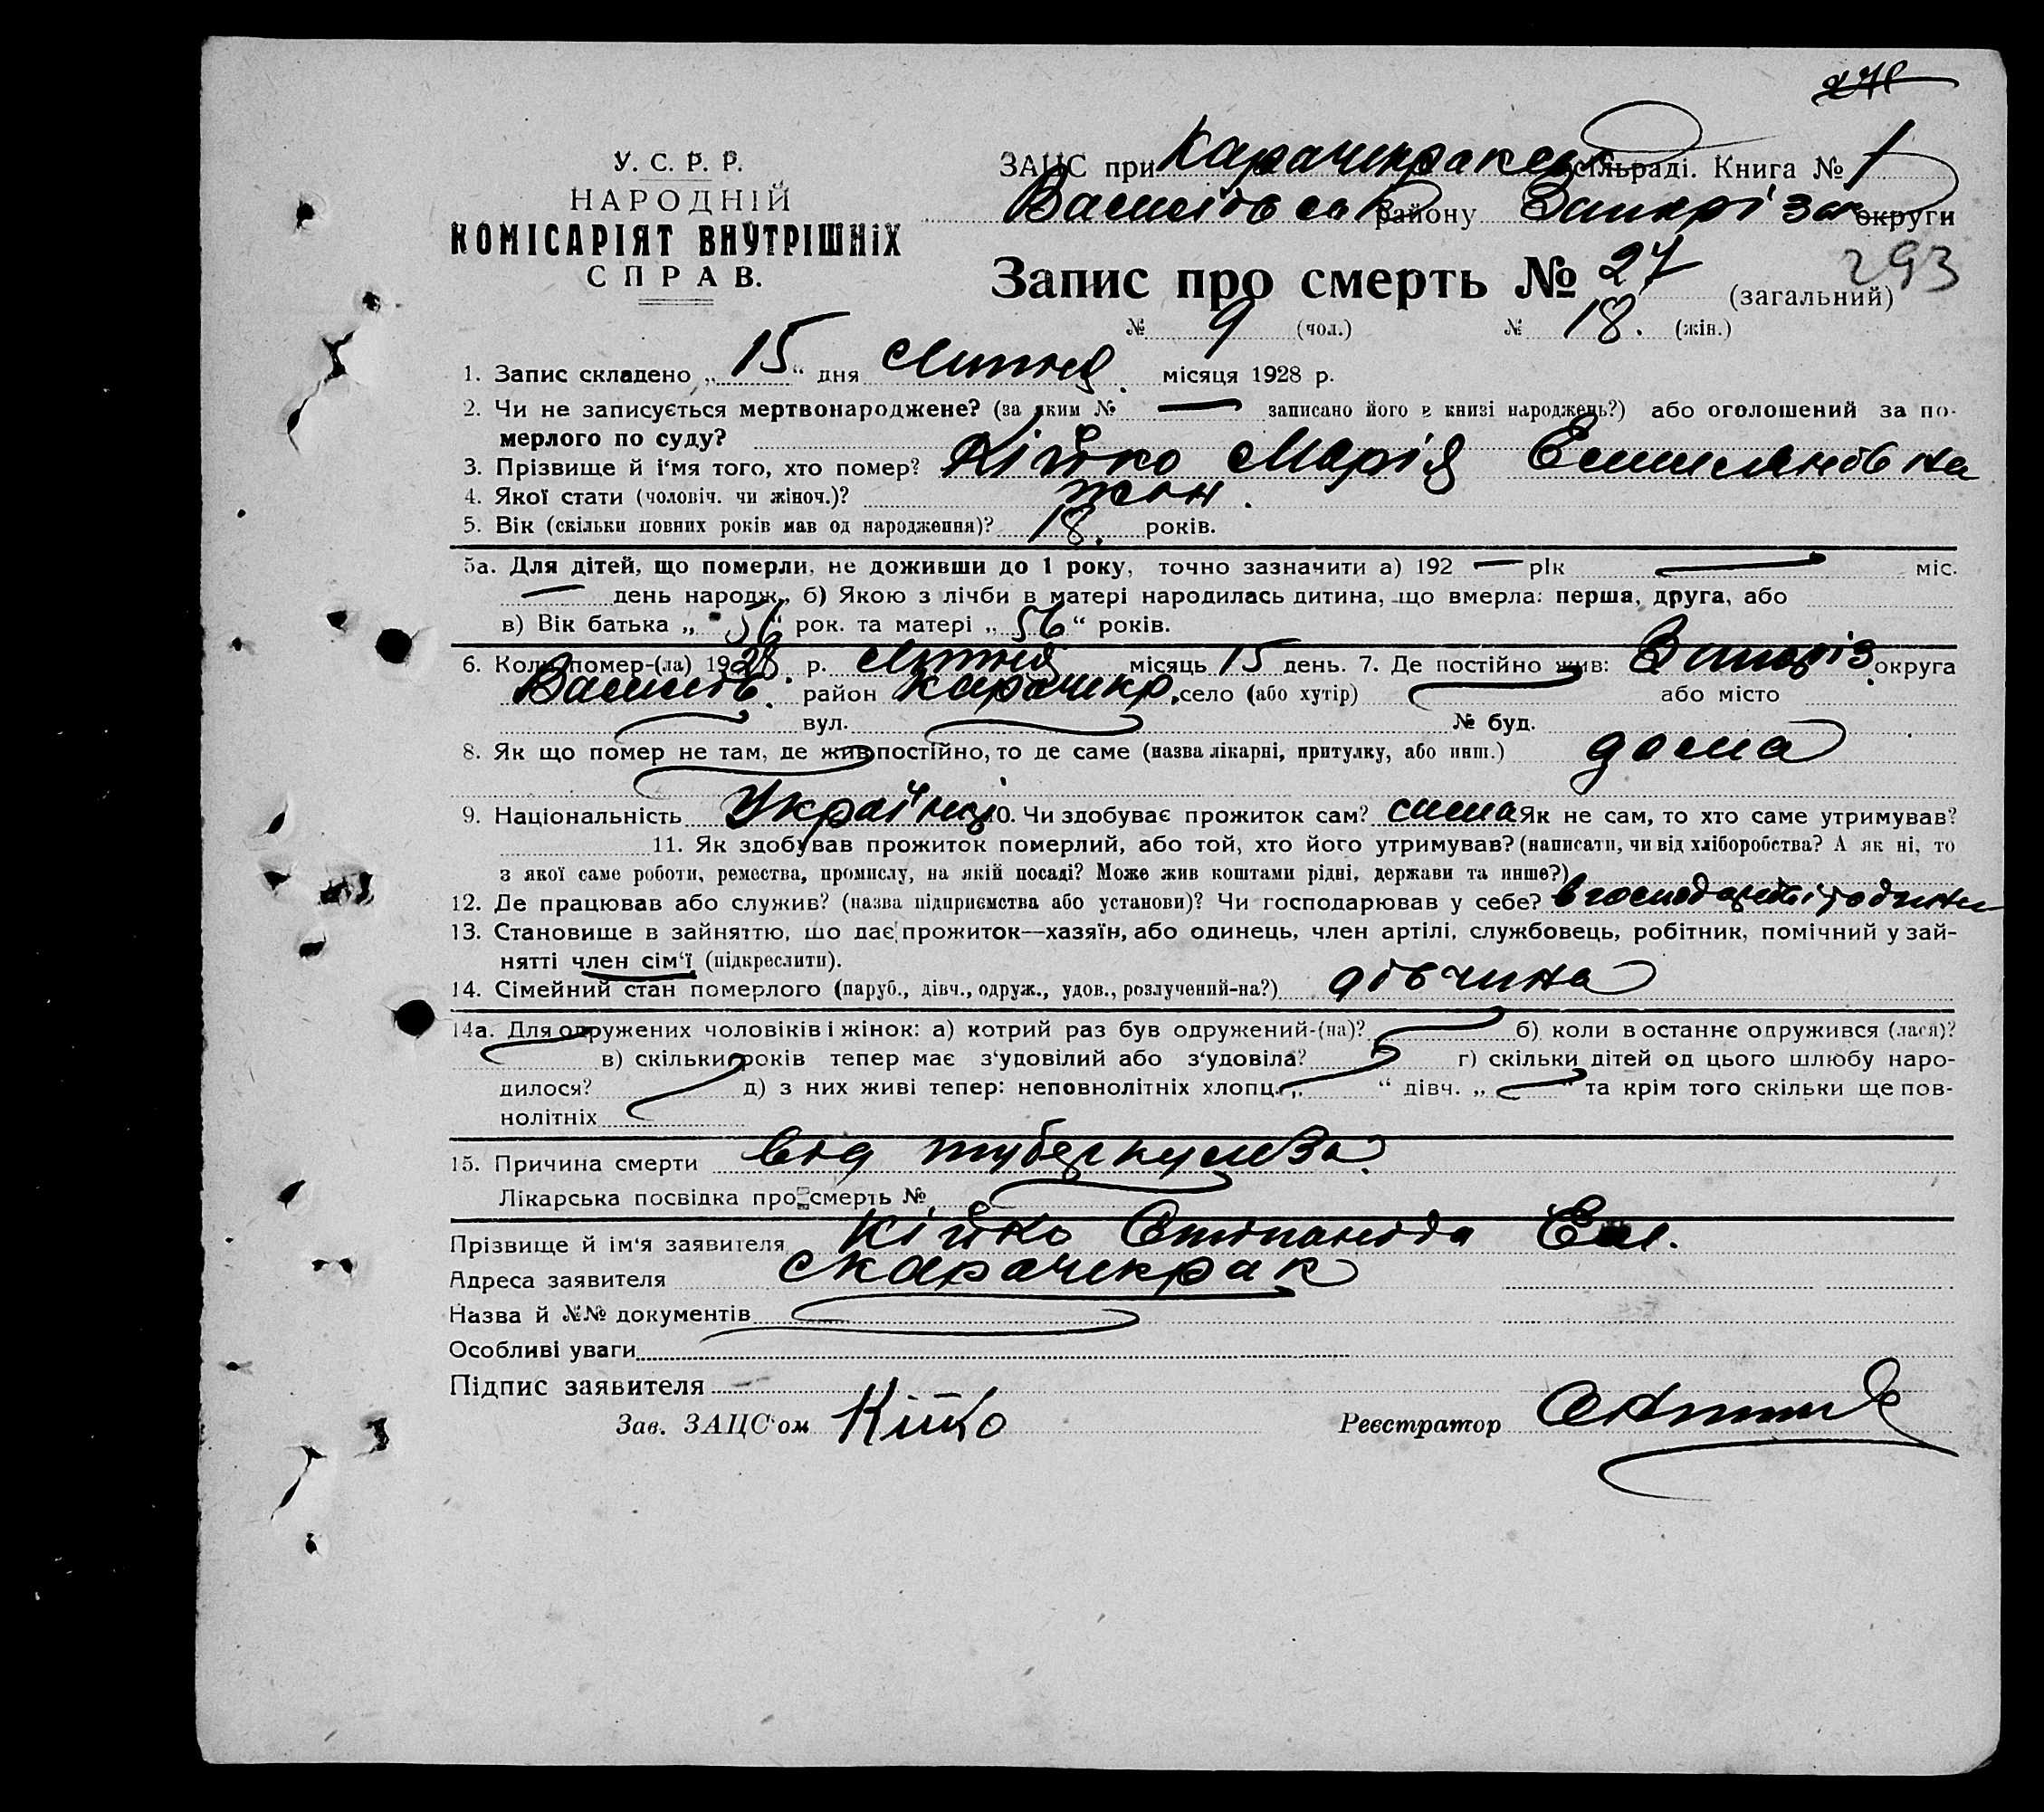 271
У. С. Р. Р.
НАРОДНІЙ
КОМІСАРІЯТ ВНУТРІШНІХ
СПРАВ.
ЗАЦС при Карачекракск сільраді. Книга № 1
Василівськ району Запоріза округи
293
Запис про смерть № 27 (загальний)
№ 9 (чол.) № 18. (жін.)
1. Запис складено „15“ дня Липня місяця 1928 р.
2. Чи не записується мертвонароджене? (за яким № — записано його в книзі народжень?) або оголошений за по-
мерлого по суду?
3. Прізвище й і‘мя того, хто помер? Кійко Марія
4. Якої стати (чоловіч. чи жіноч.)? жін.
5. Вік (скільки повних років мав од народження)? 18. років.
5а. Для дітей, що померли, не доживши до 1 року, точно зазначити а) 192 — рік — міс.
— день народж., б) Якою з лічби в матері народилась дитина, що вмерла: перша, друга, або
в) Вік батька „56“ рок. та матері „56“ років.
6. Коли помер-(ла) 1928 р. Липня місяць 15 день. 7. Де постійно жив: Запоріз. округа
Василів. район Карачекр. село (або хутір) або місто
вул. № буд.
8. Як що помер не там, де жив постійно, то де саме (назва лікарні, притулку, або инш.) дома
9. Національність Українці 10. Чи здобуває прожиток сам? сама Як не сам, то хто саме утримував?
11. Як здобував прожиток померлий, або той, хто його утримував? (написати, чи від хліборобства? А як ні, то
з якої саме роботи, ремества, промислу, на якій посаді? Може жив коштами рідні, держави та инше?)
12. Де працював або служив? (назва підприємства або установи)? Чи господарював у себе? в господарстві родини
13. Становище в зайняттю, що дає прожиток—хазяїн, або одинець, член артілі, службовець, робітник, помічний у зай-
нятті член сім‘ї (підкреслити).
14. Сімейний стан померлого (паруб., дівч., одруж., удов., розлучений-на?) дівчина
14а. Для одружених чоловіків і жінок: а) котрий раз був одружений-(на)? б) коли в останнє одружився (лася)?
в) скільки років тепер має з‘удовілий або з‘удовіла? г) скільки дітей од цього шлюбу наро-
дилося? д) з них живі тепер: неповнолітніх хлопц. „ “ дівч. „ “ та крім того скільки ще пов-
нолітніх
15. Причина смерти від туберкульоза.
Лікарська посвідка про смерть №
Прізвище й ім‘я заявителя Кійко Степанида Ем.
Адреса заявителя с Карачекрак
Назва й №№ документів
Особливі уваги
Підпис заявителя
Зав. ЗАЦС‘ом Кійко Реєстратор